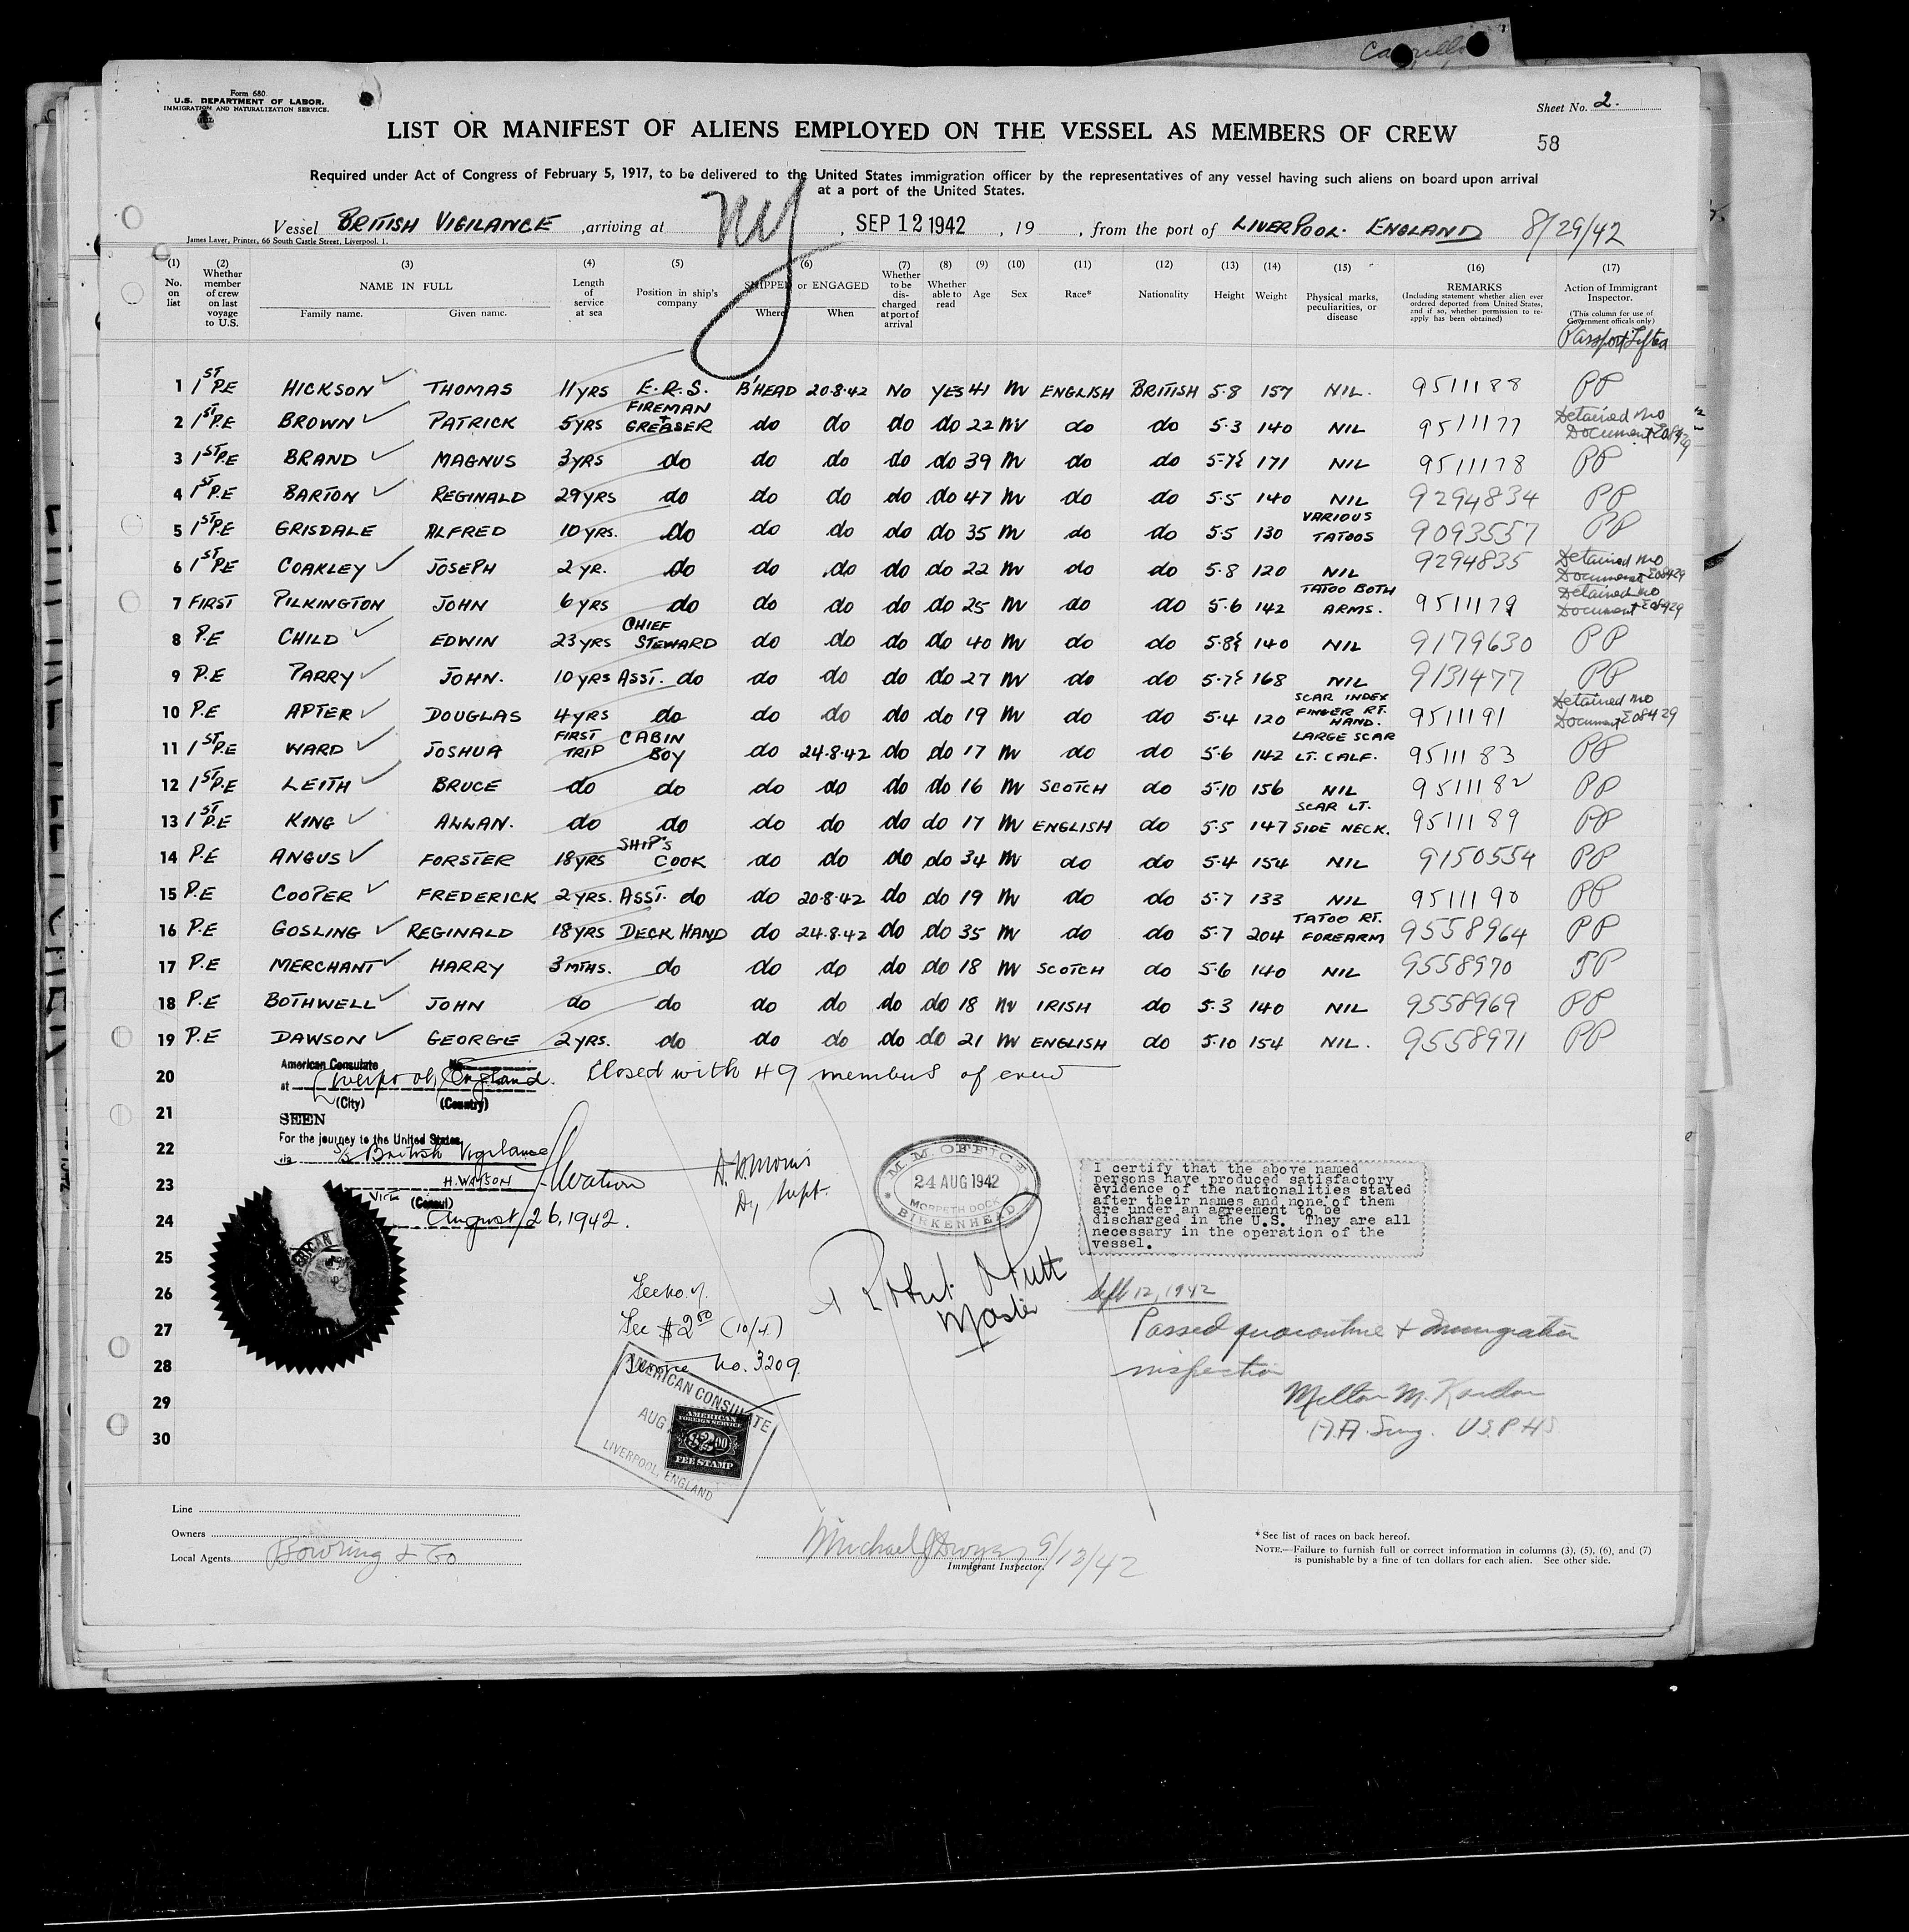 Form 680
U.S. DEPARTMENT OF LABOR.
IMMIGRATION AND NATURALIZATION SERVICE.
Sheet No. 2.
LIST OR MANIFEST OF ALIENS EMPLOYED ON THE VESSEL AS MEMBERS OF CREW
58
Required under Act of Congress of February 5, 1917, to be delivered to the United States immigration officer by the representatives of any vessel having such aliens on board upon arrival
at a port of the United States.
Vessel BRITISH VIGILANCE ,arriving at NY , SEP 12 1942 , 19 , from the port of LIVERPOOL. ENGLAND 8/29/42
James Laver, Printer, 66 South Castle Street, Liverpool, 1.
(1) No. on list (2) Whether member of crew on last voyage to U.S. (3) NAME IN FULL Family name. Given name. (4) Length of service at sea (5) Position in ship's company (6) SHIPPED or ENGAGED Where When (7) Whether to be discharged at port of arrival (8) Whether able to read (9) Age (10) Sex (11) Race* (12) Nationality (13) Height (14) Weight (15) Physical marks, peculiarities, or disease (16) REMARKS (Including statement whether alien ever ordered deported from United States, and if so, whether permission to re-apply has been obtained) (17) Action of Immigrant Inspector. (This column for use of Government officals only)
Passport Lifted
1 1ST P.E HICKSON THOMAS 11 YRS E.R.S. B'HEAD 20.8.42 NO YES 41 M ENGLISH BRITISH 5.8 157 NIL. 9511188 PP
2 1ST P.E BROWN PATRICK 5 YRS FIREMAN + GREASER do do do do 22 M do do 5.3 140 NIL 9511177 Detained no Document E08429
3 1ST P.E BRAND MAGNUS 3 YRS do do do do do 39 M do do 5.7½ 171 NIL 9511178 PP
4 1ST P.E BARTON REGINALD 29 YRS do do do do do 47 M do do 5.5 140 NIL 9294834 PP
5 1ST P.E GRISDALE ALFRED 10 YRS. do do do do do 35 M do do 5.5 130 VARIOUS TATOOS 9093557 PP
6 1ST P.E COAKLEY JOSEPH 2 YR. do do do do do 22 M do do 5.8 120 NIL 9294835 Detained no Document E08429
7 FIRST PILKINGTON JOHN 6 YRS do do do do do 25 M do do 5.6 142 TATOO BOTH ARMS. 9511179 Detained no Document E08429
8 P.E CHILD EDWIN 23 YRS CHIEF STEWARD do do do do 40 M do do 5.8½ 140 NIL 9179630 PP
9 P.E PARRY JOHN. 10 YRS ASST. do do do do do 27 M do do 5.7½ 168 NIL 9131477 PP
10 P.E APTER DOUGLAS 4 YRS do do do do do 19 M do do 5.4 120 SCAR INDEX FINGER RT. HAND. 9511191 Detained no Document E08429
11 1ST P.E WARD JOSHUA FIRST TRIP CABIN BOY do 24.8.42 do do 17 M do do 5.6 142 LARGE SCAR LT. CALF. 9511183 PP
12 1ST P.E LEITH BRUCE do do do do do do 16 M SCOTCH do 5.10 156 NIL 9511182 PP
13 1ST P.E KING ALLAN. do do do do do do 17 M ENGLISH do 5.5 147 SCAR LT. SIDE NECK. 9511189 PP
14 P.E ANGUS FORSTER 18 YRS SHIP'S COOK do do do do 34 M do do 5.4 154 NIL 9150554 PP
15 P.E COOPER FREDERICK 2 YRS. ASST. do do 20.8.42 do do 19 M do do 5.7 133 NIL 9511190 PP
16 P.E GOSLING REGINALD 18 YRS DECK HAND do 24.8.42 do do 35 M do do 5.7 204 TATOO RT. FOREARM 9558964 PP
17 P.E MERCHANT HARRY 3 MTHS. do do do do do 18 M SCOTCH do 5.6 140 NIL 9558970 PP
18 P.E BOTHWELL JOHN do do do do do do 18 M IRISH do 5.3 140 NIL 9558969 PP
19 P.E DAWSON GEORGE 2 YRS. do do do do do 21 M ENGLISH do 5.10 154 NIL. 9558971 PP
20 Closed with 49 members of crew
American Consulate
at Liverpool, England.
(City) (Country)
21
SEEN
For the journey to the United States
22
via S/S British Vigilance
23
H. WATSON
Vice (Consul)
24
August 26, 1942.
H Watson
M.M. OFFICE
24 AUG 1942
MORPETH DOCK
BIRKENHEAD
I certify that the above named
persons have produced satisfactory
evidence of the nationalities stated
after their names and none of them
are under an agreement to be
discharged in the U.S. They are all
necessary in the operation of the
vessel.
25
26
27
28
29
30
Master
Fee $2.00 (10/-)
Service No. 3209.
AMERICAN CONSULATE
AUG
LIVERPOOL, ENGLAND
AMERICAN
FOREIGN SERVICE
$2.00
FEE STAMP
Sept 12, 1942
Passed quarantine & Immigration
inspection
Milton M.
A.A. Surg. USPHS
Line
Owners
Local Agents Bowring & Co
Michael J Dwyer 9/12/42
Immigrant Inspector.
* See list of races on back hereof.
NOTE.—Failure to furnish full or correct information in columns (3), (5), (6), and (7)
is punishable by a fine of ten dollars for each alien. See other side.